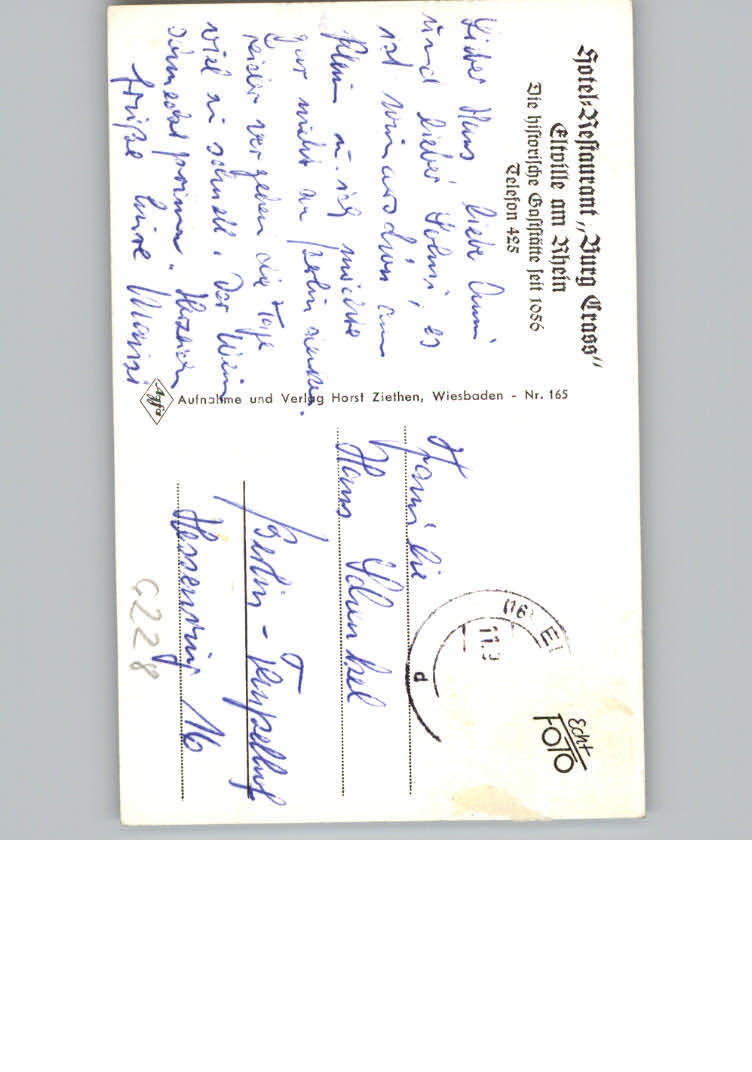 Hotel-Restaurant „Burg Crass“
Eltville am Rhein
Die historische Gaststätte seit 1056
Telefon 425
Lieber Hans liebe Anni
und lieber Helmi, es
ist wunderschön am
Rhein u. ich möchte
gar nicht an Berlin denken.
Leider vergehen die Tage
viel zu schnell. Der Wein
schmeckt prima. Herzliche
Grüße Eure
Agfa
Aufnahme und Verlag Horst Ziethen, Wiesbaden - Nr. 165
(16) EL
11.9
d
Echt
FOTO
Familie
Hans Schunkel
Berlin-Tempelhof
Hessenring 16
G228